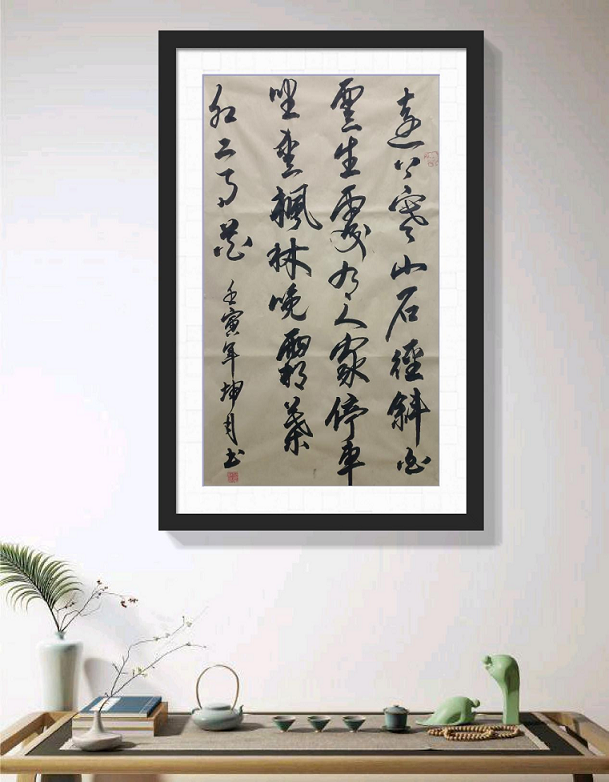 遠上寒山石徑斜白
雲生處有人家停車
坐愛楓林晚霜葉
紅二月花 壬寅年坤月書